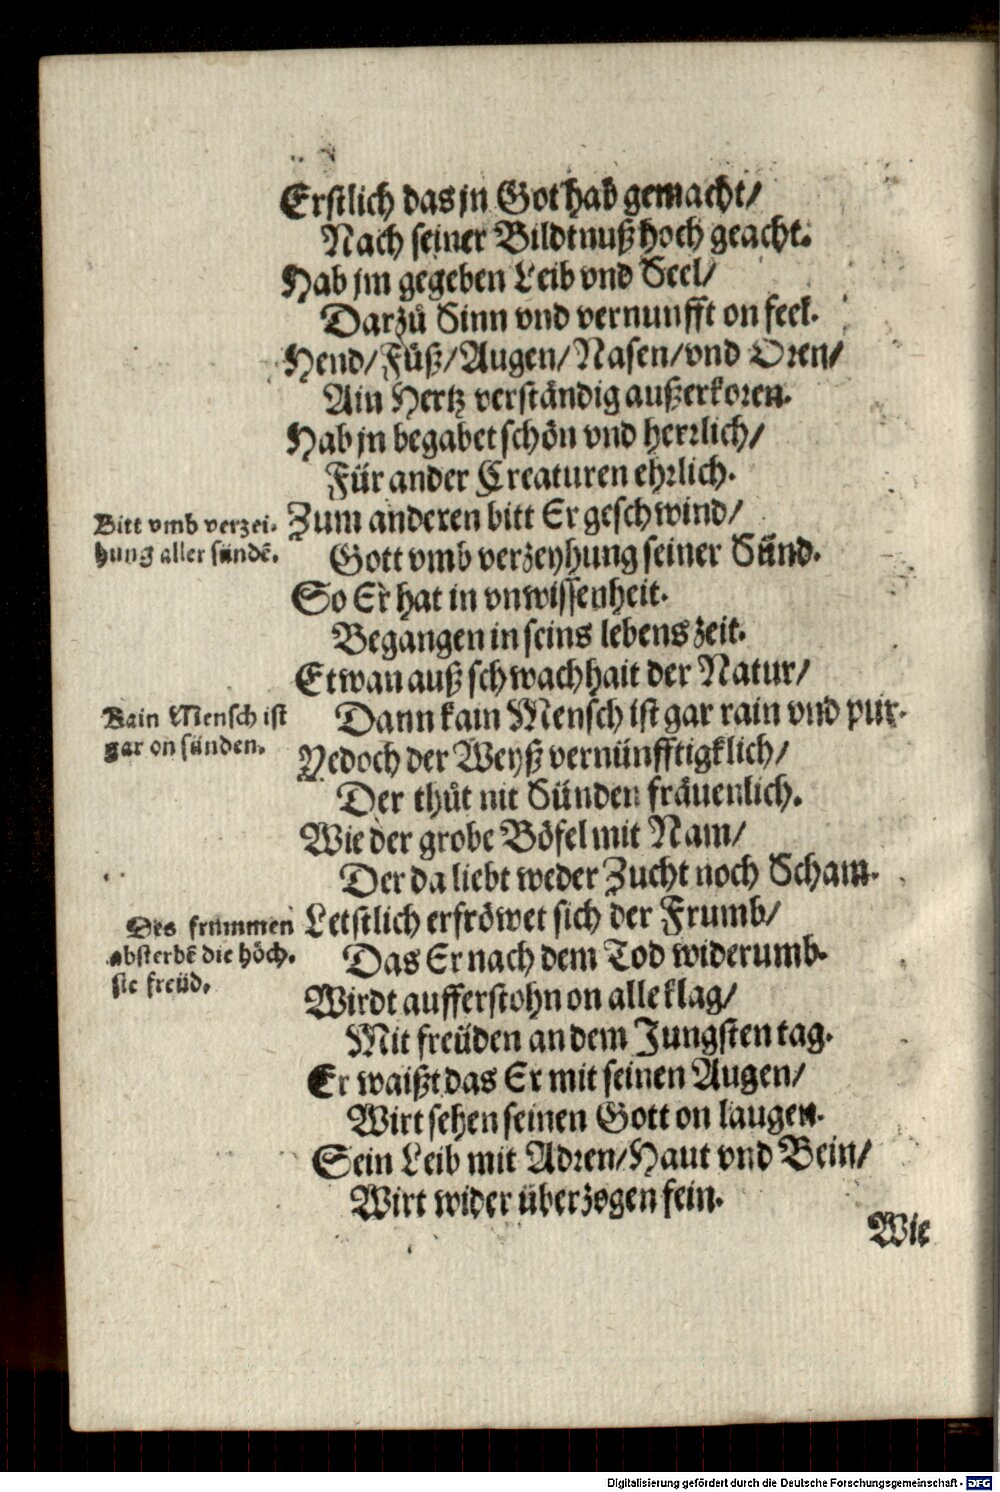 Erstlich das jn Got hab gemacht/
Nach seiner Bildtnuß hoch geacht.
Hab jm gegeben Leib vnd Seel/
Darzů Sinn vnd vernunfft on feel.
Hend/Füß/Augen/Nasen/vnd Oren/
Ain Hertz verständig außerkoren.
Hab jn begabet schön vnd herrlich/
Für ander Creaturen ehrlich.
Bitt vmb verzei-
hung aller sündẽ.
Zum anderen bitt Er geschwind/
Gott vmb verzeyhung seiner Sünd.
So Er hat in vnwissenheit.
Begangen in seins lebens zeit.
Etwan auß schwachhait der Natur/
Kain Mensch ist
gar on sünden.
Dann kain Mensch ist gar rain vnd pur.
Yedoch der Weyß vernünfftigklich/
Der thůt nit Sünden fräuenlich.
Wie der grobe Böfel mit Nam/
Der da liebt weder Zucht noch Scham.
Des frummen
absterbẽ die höch-
ste freüd.
Letstlich erfröwet sich der Frumb/
Das Er nach dem Tod widerumb.
Wirdt aufferstohn on alle klag/
Mit freüden an dem Jungsten tag.
Er waißt das Er mit seinen Augen/
Wirt sehen seinen Gott on laugen.
Sein Leib mit Adren/Haut vnd Bein/
Wirt wider überzogen fein.
Wie
Digitalisierung gefördert durch die Deutsche Forschungsgemeinschaft - DFG